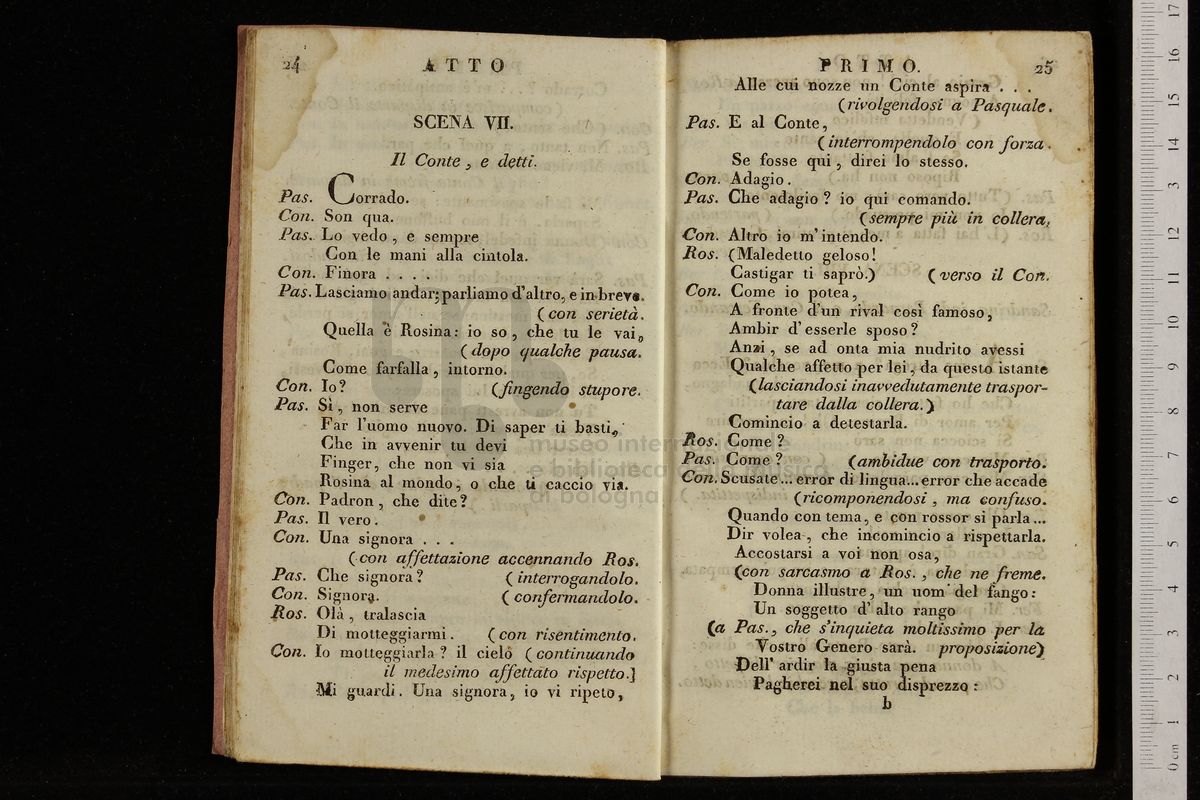 24
ATTO
SCENA VII.
Il Conte, e detti.
Pas. Corrado.
Con. Son qua.
Pas. Lo vedo, e sempre
Con le mani alla cintola.
Con. Finora . . . .
Pas. Lasciamo andar; parliamo d'altro, e in breve.
(con serietà.
Quella è Rosina: io so, che tu le vai,
(dopo qualche pausa.
Come farfalla, intorno.
Con. Io? (fingendo stupore.
Pas. Sì, non serve
Far l'uomo nuovo. Di saper ti basti,
Che in avvenir tu devi
Finger, che non vi sia
Rosina al mondo, o che ti caccio via.
Con. Padron, che dite?
Pas. Il vero.
Con. Una signora . . .
(con affettazione accennando Ros.
Pas. Che signora? (interrogandolo.
Con. Signora. (confermandolo.
Ros. Olà, tralascia
Di motteggiarmi. (con risentimento.
Con. Io motteggiarla? il cielo (continuando
il medesimo affettato rispetto.]
Mi guardi. Una signora, io vi ripeto,
PRIMO.
25
Alle cui nozze un Conte aspira . . .
(rivolgendosi a Pasquale.
Pas. E al Conte,
(interrompendolo con forza.
Se fosse qui, direi lo stesso.
Con. Adagio.
Pas. Che adagio? io qui comando.
(sempre più in collera,
Con. Altro io m'intendo.
Ros. (Maledetto geloso!
Castigar ti saprò.) (verso il Con.
Con. Come io potea,
A fronte d'un rival così famoso,
Ambir d'esserle sposo?
Anzi, se ad onta mia nudrito avessi
Qualche affetto per lei, da questo istante
(lasciandosi inavvedutamente traspor-
tare dalla collera.)
Comincio a detestarla.
Ros. Come?
Pas. Come? (ambidue con trasporto.
Con. Scusate... error di lingua... error che accade
(ricomponendosi, ma confuso.
Quando con tema, e con rossor si parla...
Dir volea, che incomincio a rispettarla.
Accostarsi a voi non osa,
(con sarcasmo a Ros., che ne freme.
Donna illustre, un uom del fango:
Un soggetto d'alto rango
(a Pas., che s'inquieta moltissimo per la
Vostro Genero sarà. proposizione)
Dell'ardir la giusta pena
Pagherei nel suo disprezzo:
b
museo internazionale
e biblioteca della musica
di bologna
0 cm 1 2 3 4 5 6 7 8 9 10 11 12 13 14 15 16 17